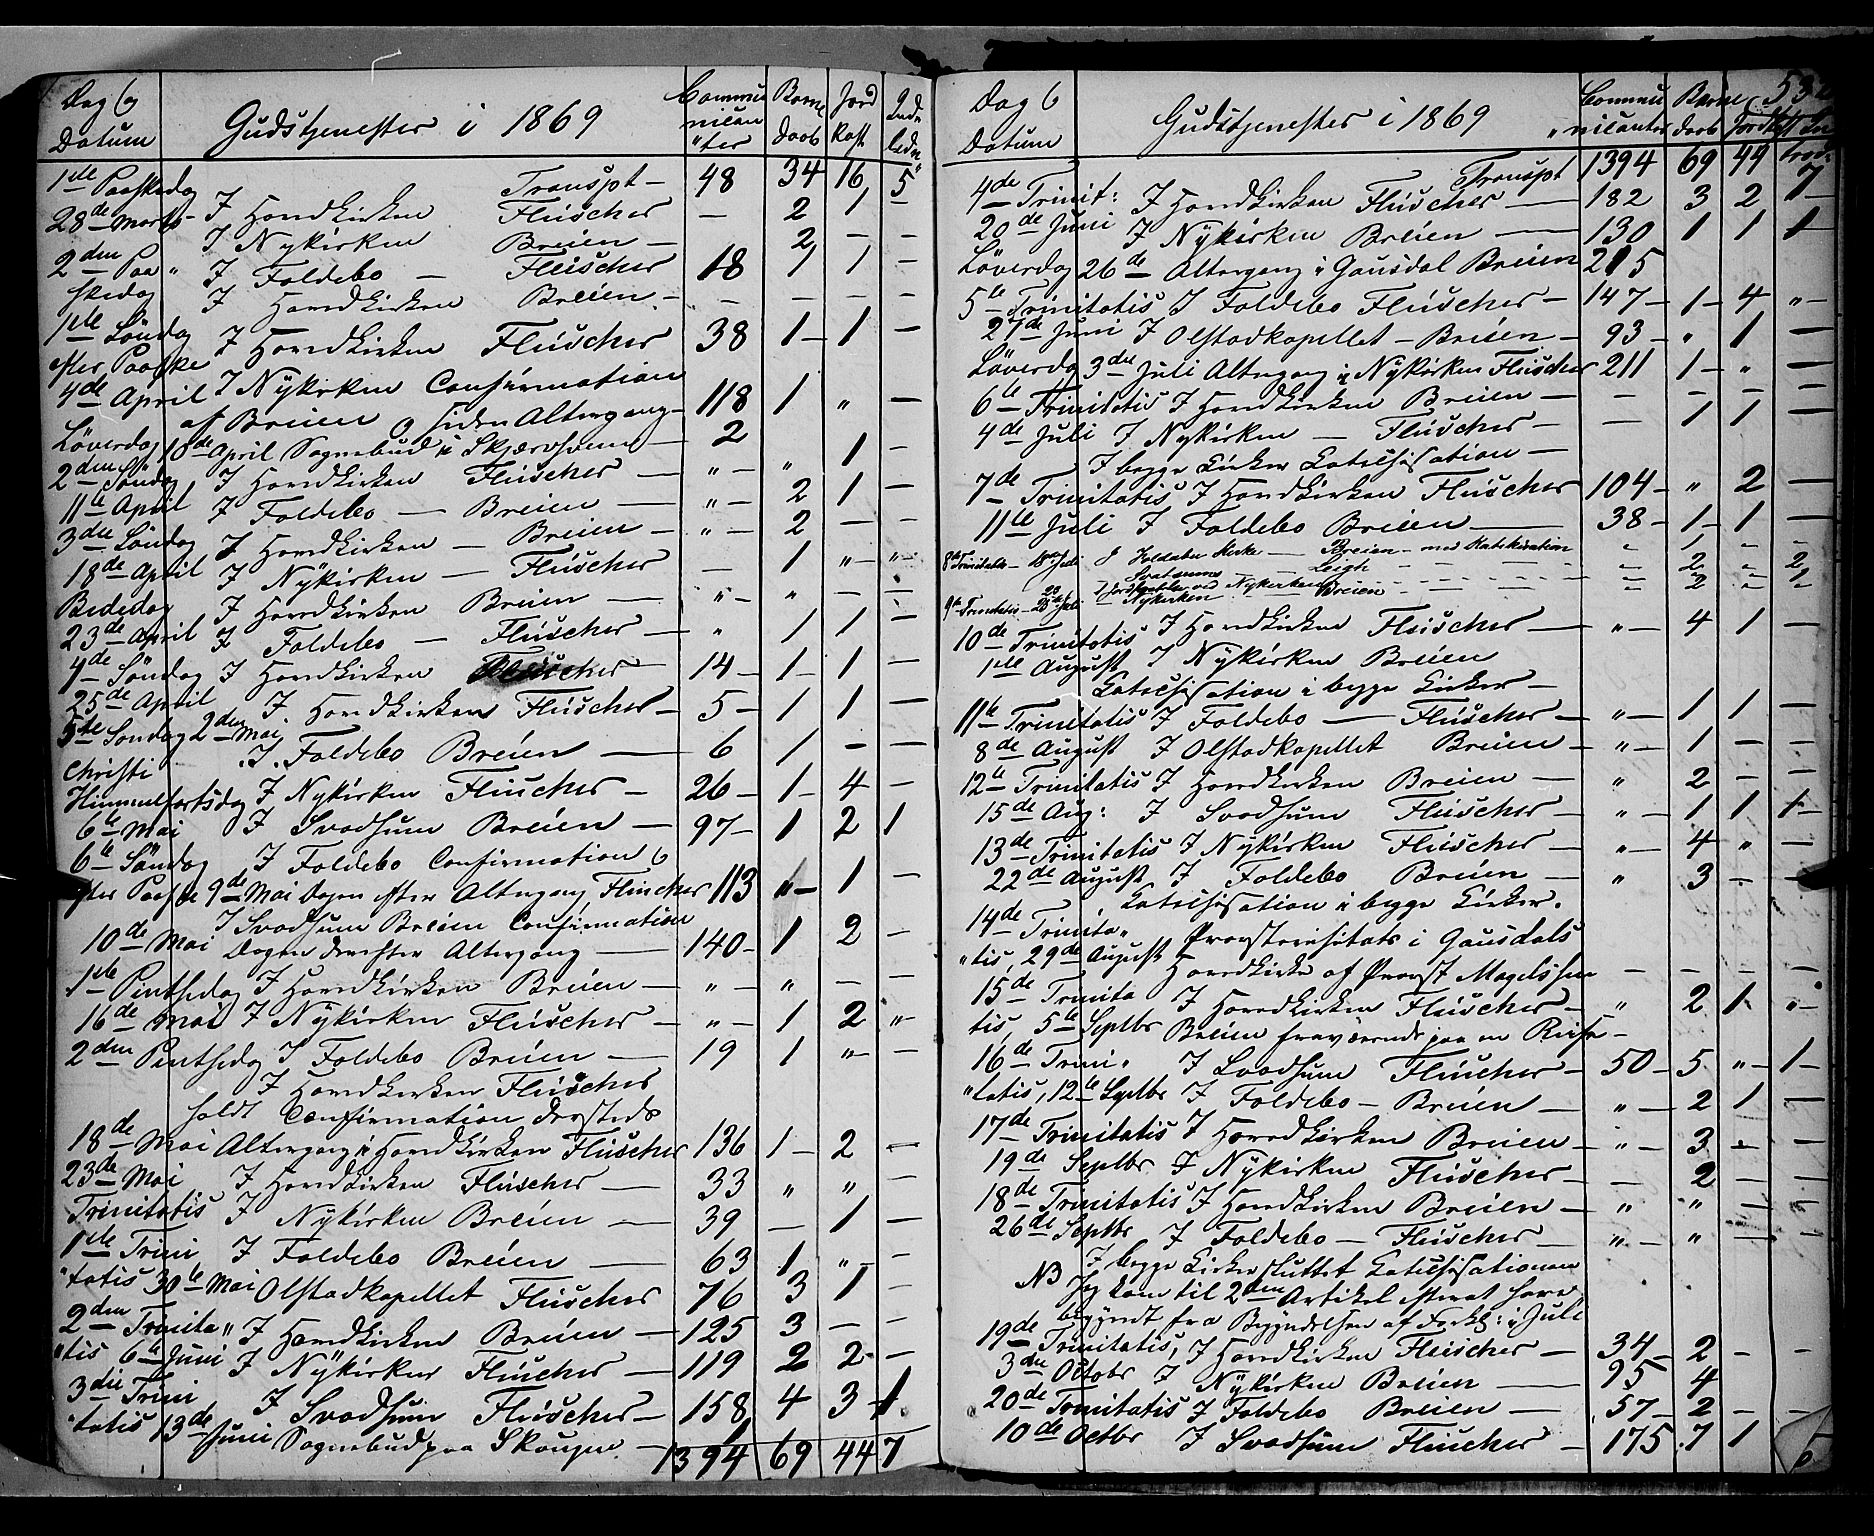 Dag & Datum Gudstjenester i 1869 Communicanter Barnedaab Jordkast Indledn
1ste Paaskedag Transpt – 48 34 16 5
28de Marts – I Hovedkirken Fleischer – 2 1 –
I Nykirken Breien – 2 – –
2den Paa„ I Foldebo – Fleischer 18 1 1 –
skedag I Hovedkirken Breien – – – – –
1ste Söndag I Hovedkirken Fleischer 38 1 – 1 –
efter Paaske
4de April I Nykirken Confirmation
af Breien og siden Altergang – 118 1 „ –
Löverdag 10de April Sognebud i Skjærdsemm – 2 1 –
2den Söndag I Hovedkirken Fleischer – „ – „ 1 –
11te April I Foldebo – Breien – „ – 2 1 –
3die Löndag I Hovedkirken – Breien – „ – 2 – –
18de April I Nykirken – Fleischer – 1 „ – „ –
Bededag I Hovedkirken Breien – „ – „ – –
23de April I Foldebo – Fleischer – „ 1 1 –
4de Söndag I Hovedkirken Fleischer 14 – 1 – 1 –
25de April I Hovedkirken Fleischer – 5 – 1 1 –
5te Söndag 2den Mai
I. Foldebo Breien – 6 1 – –
Christi
Himmelfartsdag I Nykirken Fleischer – 26 – 1 – 4 –
6te Mai I Svadsum Breien – 97 – 1 2 1
6te Söndag I Foldebo Confirmation &
efter Paaske 9de Mai Dagen efter Altergang, Fleischer 113 „ – 1 –
I Svadsum Breien Confirmation
10de Mai Dagen derefter Altergang – 140 – 1 2 –
1ste Pintsedag I Hovedkirken Breien – „ – „ – –
16de Mai I Nykirken Fleischer – „ – 1 2 „
2den Pintsedag I Foldebo Breien – 19 1 „ – –
I Hovedkirken Fleischer
holdt Confirmation dersteds
18de Mai Altergang i Hovedkirken Fleischer 136 1 – 2 –
23de Mai I Hovedkirken Fleischer – 33 „ „ –
Trinitatis I Nykirken Breien – 39 – 1 –
1ste Trini I Foldebo Breien – 63 1 „ –
„tatis 30te Mai Olstadkapellet Fleischer 76 3 1 –
2den Trinita„ I Hovedkirken Breien – 125 3 – –
„tis 6te Juni I Nykirken Fleischer – 119 2 2 – –
3die Trini I Svadsum Fleischer – 158 4 3 1
„tatis 13de Juni Sognebud paa Skougen – 1
1394 69 44 7
532
Dag & Datum Gudstjenester i 1869 Communicanter Barnedaab Jordkast In
Transpt 1394 69 44 7
4de Trinit: I Hovedkirken Fleischer – 182 3 2 –
20de Juni I Nykirken Breien – 130 1 1 1 –
Löverdag 26de Altergang i Gausdal Breien 215
5te Trinitatis I Foldebo Fleischer – 147 – 1 – 4 „ –
27de Juni I Olstadkapellet – Breien – 93 – „ 1 –
Löverdag 3die Juli Altergang i Nykirken Fleischer 211 1 – „ –
6te Trinitatis I Hovedkirken Breien – – – – –
4de Juli I Nykirken – Fleischer – – 1 1 –
I begge Kirker Catechisation –
7de Trinitatis I Hovedkirken Fleischer 104 – „ 2 –
11te Juli I Foldebo Breien – 38 – 1 – 1 –
8de Trinitatis – 18de Juli I Foldebo Kirke – Breien – med Katekisation „ 1 „ –
Svatsum – Leigh – – – – – – 2 – 2
I Jordkastelse ved Nykirken
9de Trinitatis – 25de Juli – Nykirken – Breien – – – – „ 2 „ 1
10de Trinitatis I Hovedkirken Fleischer – „ – 4 1 –
1ste August I Nykirken Breien
Catechisation i begge Kirker –
11te Trinitatis I Foldebo – Fleischer – „ – 1 1 –
8de August I Olstadkapellet Breien – „ – 1 – –
12te Trinitatis I Hovedkirken Breien – „ 2 – –
15de Aug: I Svadsum Fleischer – „ – 1 1 1 –
13de Trinitatis I Nykirken Fleischer – „ – 4 „ –
22de August I Foldebo Breien – „ 3 – –
Catechisation i begge Kirker.
14de Trinita„ Provstevisitats i Gausdals
„tis, 29de August Hovedkirke af Provst Magelssen – – – –
15de Trinita I Hovedkirken Fleischer – „ 2 1 „ –
tis, 5te Septbr Breien fraværende paa en Reise –
16de Trini„ I Svadsum Fleischer – 50 – 5 „ – 1 –
„tatis, 12te Septbr I Foldebo – Breien – „ – 2 1 –
17de Trinitatis I Hovedkirken Breien – „ – 3 – –
19de Septbr I Nykirken Fleischer – – 2 – –
18de Trinitatis I Hovedkirken Breien – „ „ – –
26de Septbr I Foldebo – Fleischer – „ – „ – –
I begge Kirker sluttet Catechisationen
NB Jeg kom til 2den Artikel efterat have
begyndt fra Begyndelsen af Forkl: i Juli
19de Trinitatis, I Hovedkirken Fleischer – 34 – 2 – –
3die Octobr I Nykirken Breien – 95 4
20de Trinitatis I Foldebo Breien – 57 – 2 – –
10de Octbr I Svadsum Fleischer – 175 7 1